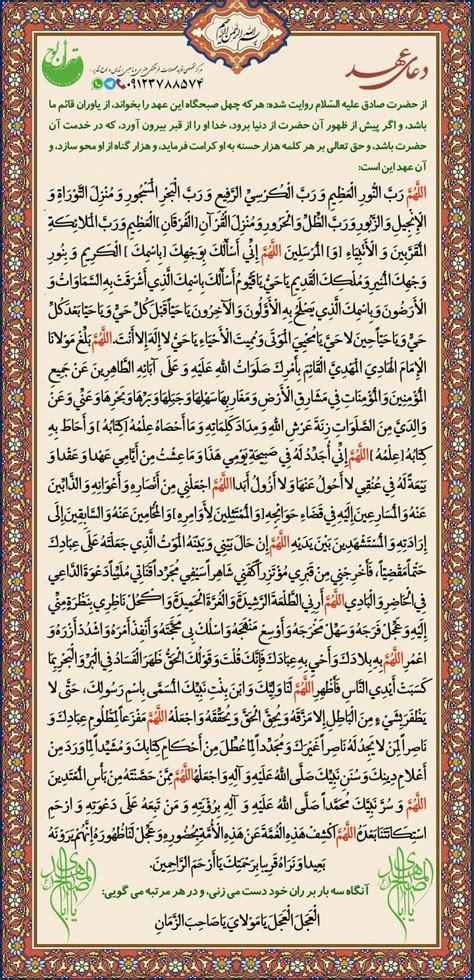 بسم الله الرحمن الرحیم
دعای عهد
۰۹۱۲۳۷۸۸۵۷۴
از حضرت صادق علیه السّلام روایت شده: هر که چهل صبحگاه این عهد را بخواند، از یاوران قائم ما
باشد، و اگر پیش از ظهور آن حضرت از دنیا برود، خدا او را از قبر بیرون آورد، که در خدمت آن
حضرت باشد، و حق تعالی بر هر کلمه هزار حسنه به او کرامت فرماید، و هزار گناه از او محو سازد، و
آن عهد این است:
اَللّٰهُمَّ رَبَّ النُّورِ الْعَظِیمِ وَ رَبَّ الْکُرْسِیِّ الرَّفِیعِ وَ رَبَّ الْبَحْرِ الْمَسْجُورِ وَ مُنْزِلَ التَّوْرَاةِ وَ
الْإِنْجِیلِ وَ الزَّبُورِ وَ رَبَّ الظِّلِّ وَ الْحَرُورِ وَ مُنْزِلَ الْقُرْآنِ [الْفُرْقَانِ] الْعَظِیمِ وَ رَبَّ الْمَلائِکَةِ
الْمُقَرَّبِینَ وَ الْأَنْبِیَاءِ [وَ] الْمُرْسَلِینَ اَللّٰهُمَّ إِنِّی أَسْأَلُکَ بِوَجْهِکَ [بِاسْمِکَ] الْکَرِیمِ وَ بِنُورِ
وَجْهِکَ الْمُنِیرِ وَ مُلْکِکَ الْقَدِیمِ یَا حَیُّ یَا قَیُّومُ أَسْأَلُکَ بِاسْمِکَ الَّذِی أَشْرَقَتْ بِهِ السَّمَاوَاتُ وَ
الْأَرَضُونَ وَ بِاسْمِکَ الَّذِی یَصْلَحُ بِهِ الْأَوَّلُونَ وَ الْآخِرُونَ یَا حَیّاً قَبْلَ کُلِّ حَیٍّ وَ یَا حَیّاً بَعْدَ کُلِّ
حَیٍّ وَ یَا حَیّاً حِینَ لا حَیَّ یَا مُحْیِیَ الْمَوْتَى وَ مُمِیتَ الْأَحْیَاءِ یَا حَیُّ لا إِلَهَ إِلا أَنْتَ. اَللّٰهُمَّ بَلِّغْ مَوْلانَا
الْإِمَامَ الْهَادِیَ الْمَهْدِیَّ الْقَائِمَ بِأَمْرِکَ صَلَوَاتُ اللهِ عَلَیْهِ وَ عَلَى آبَائِهِ الطَّاهِرِینَ عَنْ جَمِیعِ
الْمُؤْمِنِینَ وَ الْمُؤْمِنَاتِ فِی مَشَارِقِ الْأَرْضِ وَ مَغَارِبِهَا سَهْلِهَا وَ جَبَلِهَا وَ بَرِّهَا وَ بَحْرِهَا وَ عَنِّی وَ عَنْ
وَالِدَیَّ مِنَ الصَّلَوَاتِ زِنَةَ عَرْشِ اللهِ وَ مِدَادَ کَلِمَاتِهِ وَ مَا أَحْصَاهُ عِلْمُهُ [کِتَابُهُ] وَ أَحَاطَ بِهِ
کِتَابُهُ [عِلْمُهُ] اَللّٰهُمَّ إِنِّی أُجَدِّدُ لَهُ فِی صَبِیحَةِ یَوْمِی هَذَا وَ مَا عِشْتُ مِنْ أَیَّامِی عَهْداً وَ عَقْداً وَ
بَیْعَةً لَهُ فِی عُنُقِی لا أَحُولُ عَنْهَا وَ لا أَزُولُ أَبَداً اَللّٰهُمَّ اجْعَلْنِی مِنْ أَنْصَارِهِ وَ أَعْوَانِهِ وَ الذَّابِّینَ
عَنْهُ وَ الْمُسَارِعِینَ إِلَیْهِ فِی قَضَاءِ حَوَائِجِهِ [وَ الْمُمْتَثِلِینَ لِأَوَامِرِهِ] وَ الْمُحَامِینَ عَنْهُ وَ السَّابِقِینَ إِلَى
إِرَادَتِهِ وَ الْمُسْتَشْهَدِینَ بَیْنَ یَدَیْهِ اَللّٰهُمَّ إِنْ حَالَ بَیْنِی وَ بَیْنَهُ الْمَوْتُ الَّذِی جَعَلْتَهُ عَلَى عِبَادِکَ
حَتْماً مَقْضِیّاً، فَأَخْرِجْنِی مِنْ قَبْرِی مُؤْتَزِراً کَفَنِی شَاهِراً سَیْفِی مُجَرِّداً قَنَاتِی مُلَبِّیاً دَعْوَةَ الدَّاعِی
فِی الْحَاضِرِ وَ الْبَادِی اَللّٰهُمَّ أَرِنِی الطَّلْعَةَ الرَّشِیدَةَ وَ الْغُرَّةَ الْحَمِیدَةَ وَ اکْحُلْ نَاظِرِی بِنَظْرَةٍ مِنِّی
إِلَیْهِ وَ عَجِّلْ فَرَجَهُ وَ سَهِّلْ مَخْرَجَهُ وَ أَوْسِعْ مَنْهَجَهُ وَ اسْلُکْ بِی مَحَجَّتَهُ وَ أَنْفِذْ أَمْرَهُ وَ اشْدُدْ أَزْرَهُ وَ
اعْمُرِ اَللّٰهُمَّ بِهِ بِلادَکَ وَ أَحْیِ بِهِ عِبَادَکَ فَإِنَّکَ قُلْتَ وَ قَوْلُکَ الْحَقُّ ظَهَرَ الْفَسَادُ فِی الْبَرِّ وَ الْبَحْرِ بِمَا
کَسَبَتْ أَیْدِی النَّاسِ فَأَظْهِرِ اَللّٰهُمَّ لَنَا وَلِیَّکَ وَ ابْنَ بِنْتِ نَبِیِّکَ الْمُسَمَّى بِاسْمِ رَسُولِکَ، حَتَّى لا
یَظْفَرَ بِشَیْءٍ مِنَ الْبَاطِلِ إِلا مَزَّقَهُ وَ یُحِقَّ الْحَقَّ وَ یُحَقِّقَهُ وَ اجْعَلْهُ اَللّٰهُمَّ مَفْزَعاً لِمَظْلُومِ عِبَادِکَ وَ
نَاصِراً لِمَنْ لا یَجِدُ لَهُ نَاصِراً غَیْرَکَ وَ مُجَدِّداً لِمَا عُطِّلَ مِنْ أَحْکَامِ کِتَابِکَ وَ مُشَیِّداً لِمَا وَرَدَ مِنْ
أَعْلامِ دِینِکَ وَ سُنَنِ نَبِیِّکَ صَلَّى اللهُ عَلَیْهِ وَ آلِهِ وَ اجْعَلْهُ اَللّٰهُمَّ مِمَّنْ حَصَّنْتَهُ مِنْ بَأْسِ الْمُعْتَدِینَ
اَللّٰهُمَّ وَ سُرَّ نَبِیَّکَ مُحَمَّداً صَلَّى اللهُ عَلَیْهِ وَ آلِهِ بِرُؤْیَتِهِ وَ مَنْ تَبِعَهُ عَلَى دَعْوَتِهِ وَ ارْحَمِ
اسْتِکَانَتَنَا بَعْدَهُ اَللّٰهُمَّ اکْشِفْ هَذِهِ الْغُمَّةَ عَنْ هَذِهِ الْأُمَّةِ بِحُضُورِهِ وَ عَجِّلْ لَنَا ظُهُورَهُ إِنَّهُمْ یَرَوْنَهُ
بَعِیداً وَ نَرَاهُ قَرِیباً بِرَحْمَتِکَ یَا أَرْحَمَ الرَّاحِمِینَ.
آنگاه سه بار بر ران خود دست می زنی، و در هر مرتبه می گویی:
الْعَجَلَ الْعَجَلَ یَا مَوْلایَ یَا صَاحِبَ الزَّمَانِ